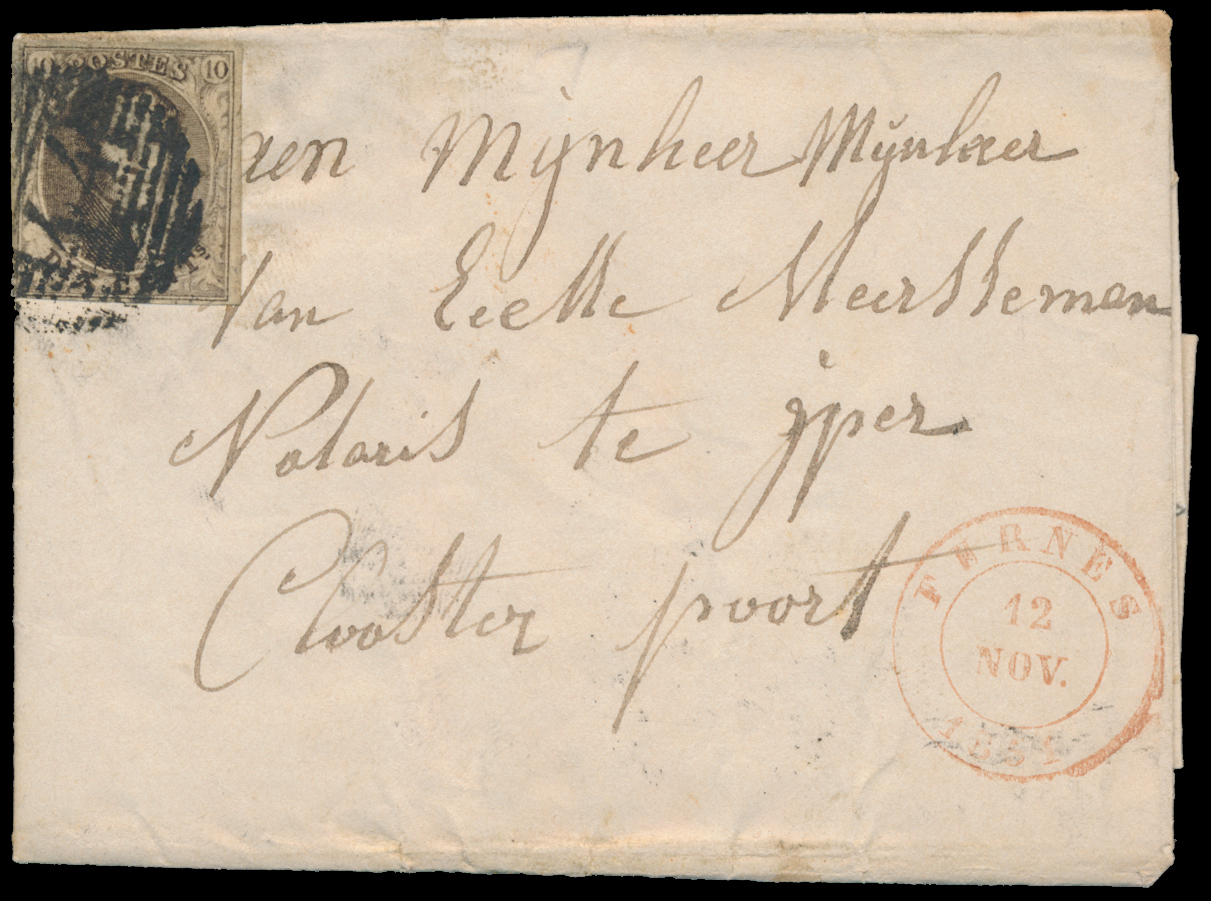 10 POSTES 10
aen Mijnheer Mijnheer
Van Eecke Meersseman
Notaris te jper
Clooster poort
FURNES
12
NOV.
1851